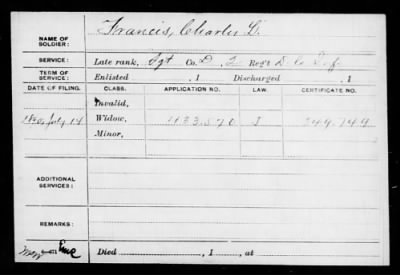 NAME OF SOLDIER: Francis, Charles D.
SERVICE: Late rank, Sgt Co. D, 2 Reg't D.C. Inf.
TERM OF SERVICE: Enlisted , 1 Discharged , 1
DATE OF FILING. CLASS. APPLICATION NO. LAW. CERTIFICATE NO.
Invalid,
July 14 Widow, 433.570 J 349.749
Minor,
ADDITIONAL SERVICES:
REMARKS:
Died , 1 , at